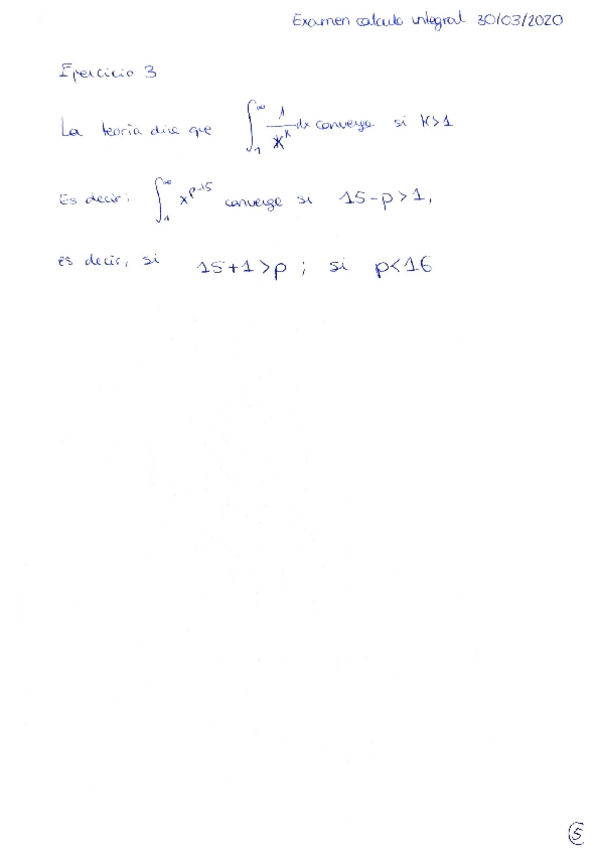 Examen calculo integral 30/03/2020
Ejercicio 3
La teoría dice que ∫₁^∞ 1/x^k dx converge si k>1
Es decir: ∫₁^∞ x^(p-15) converge si 15-p>1,
es decir, si 15+1>p ; si p<16
5